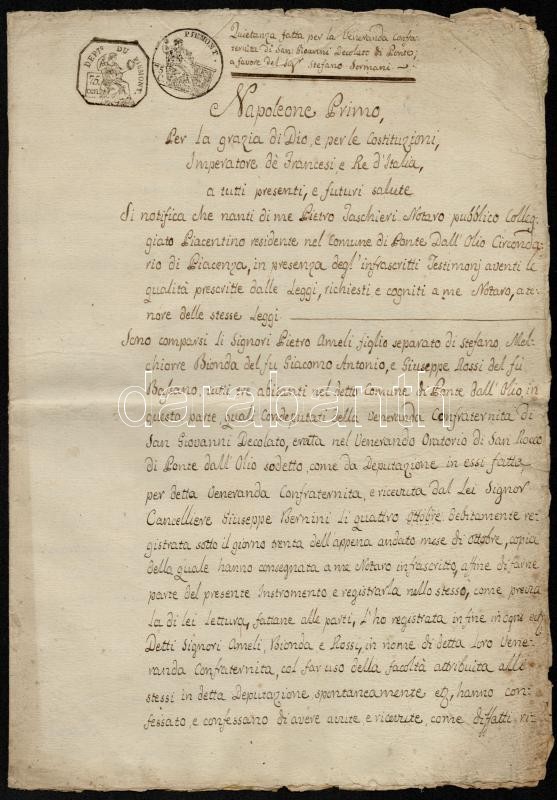 DEPts. DU PIEMONT.
75
cent.
PIEMONT.
Quietanza fatta per la Veneranda Confra-
ternita di San Giovanni Decolato di Ponte,
a favore del Sigr. Stefano Sermani
Napoleone Primo,
Per la grazia di Dio, e per le Costituzioni,
Imperatore de' Francesi e Re d'Italia,
a tutti presenti, e futuri salute
Si notifica che nanti di me Pietro Taschieri Notaro pubblico Colleg-
giato Piacentino residente nel Comune di Ponte Dall'Olio Circonda-
rio di Piacenza, in presenza degl'infrascritti Testimonj aventi le
qualità prescritte dalle Leggi, richiesti e cogniti a me Notaro, a te-
nore delle stesse Leggi.
Sono comparsi li Signori Pietro Ameli figlio separato di Stefano, Mel-
chiorre Bionda del fu Giacomo Antonio, e Giuseppe Rossi del fu
Bassano, tutti tre abitanti nel detto Comune di Ponte dall'Olio, in
questa parte, quali Condeputati della Veneranda Confraternita di
San Giovanni Decolato, eretta nel Venerando Oratorio di San Rocco
di Ponte dall'Olio sodetto, come da Deputazione in essi fatta,
per detta Veneranda Confraternita, e ricevuta dal Lei Signor
Cancelliere Giuseppe Bernini li quattro Ottobre debitamente re-
gistrata sotto il giorno trenta dell'appena andato mese di Ottobre, copia
della quale hanno consegnata a me Notaro infrascritto, a fine di farne
parte del presente Instromento e registrarla nello stesso, come previa
la di lei lettura, fattane alle parti, l'ho registrata in fine in ogne
Detti Signori Ameli, Bionda e Rossi, in nome di detta loro Vene-
randa Confraternita, col far uso della facoltà attribuita alli
stessi in detta Deputazione spontaneamente hanno con-
fessato, e confessano di avere avute e ricevute, come diffatti ri-
darabanth